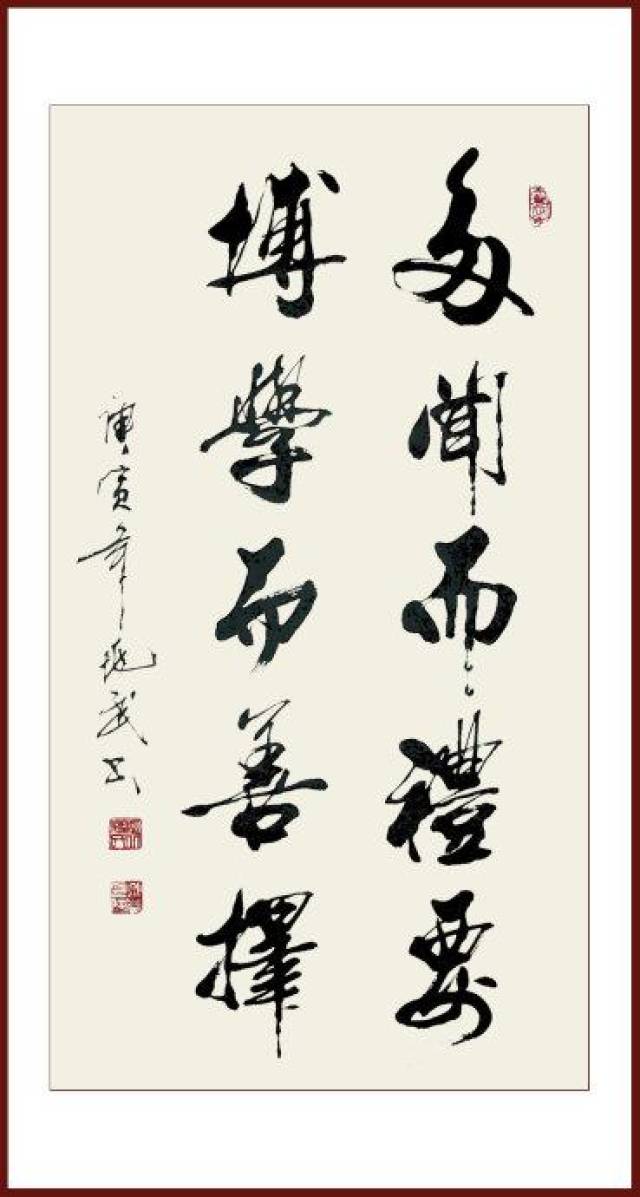 多聞而禮要
博學而善擇
庚寅年武书